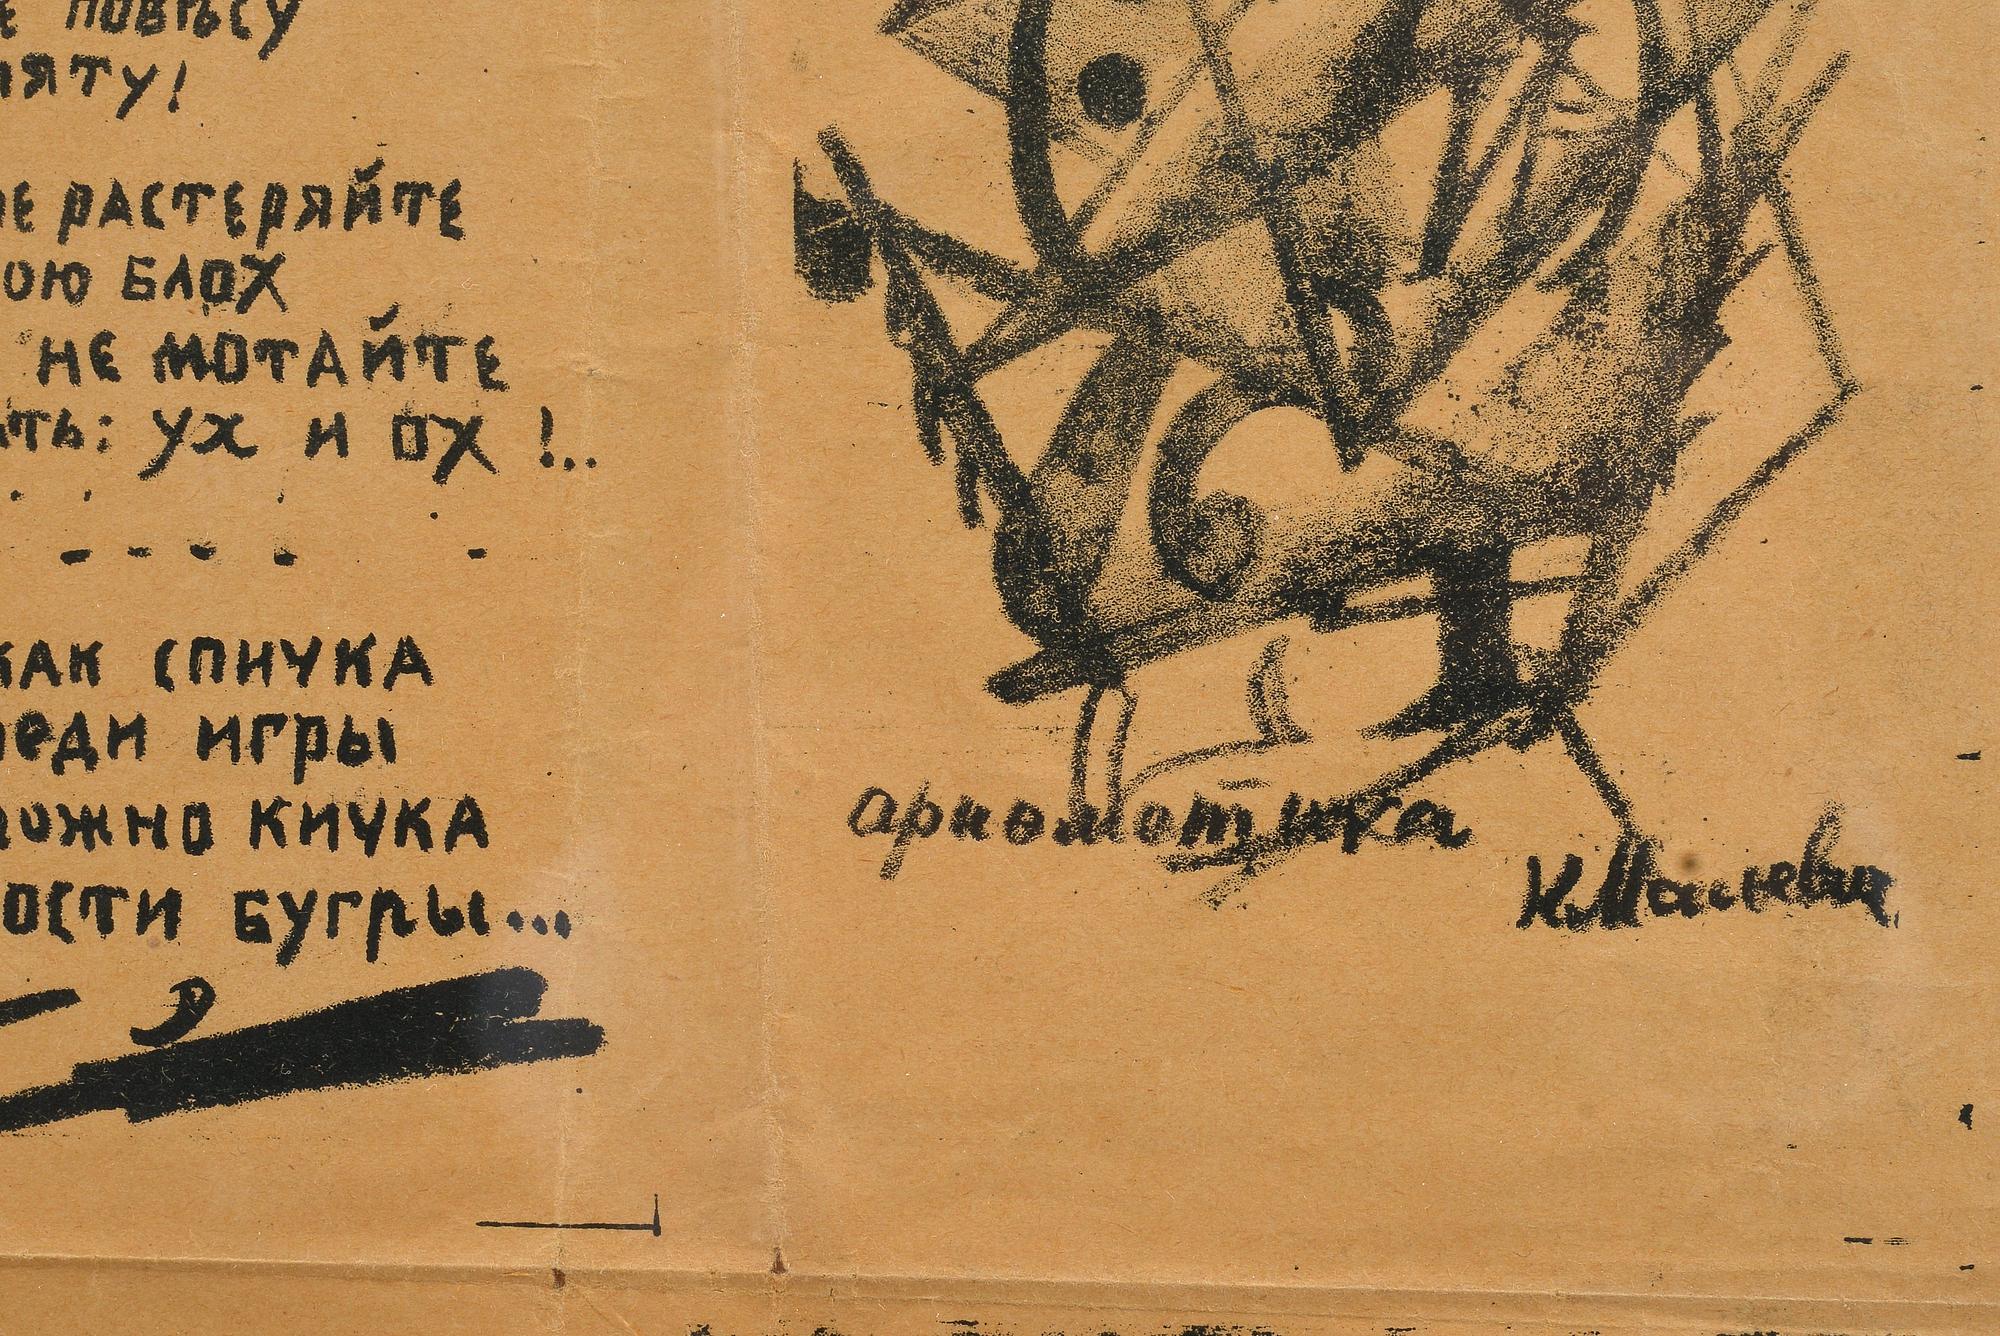 повѣсу
не растеряйте
ою блох
не мотайте
ать: ух и ох !..
как спичка
реди игры
ложно кичка
ости бугры...
арифмотика
К. Малевич